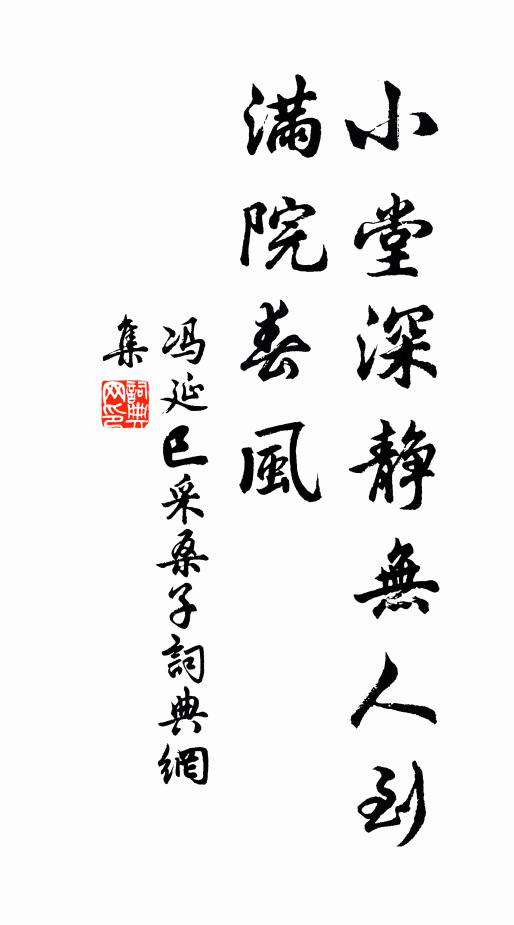 小堂深靜無人到
滿院春風
冯延巳采桑子詞典網
集
詞典网印